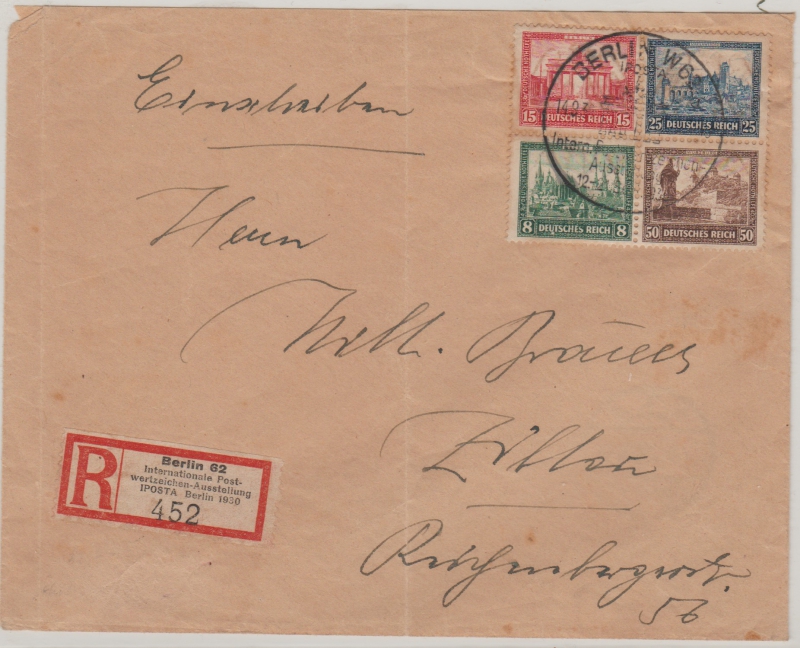 Einschreiben
15 DEUTSCHES REICH 15
25 DEUTSCHES REICH 25
8 DEUTSCHES REICH 8
50 DEUTSCHES REICH 50
BERLIN W 62
Herrn
Wilh.
Zittau
Reichenbergerstr.
56
R
Berlin 62
Internationale Post-
wertzeichen-Ausstellung
IPOSTA Berlin 1930
452